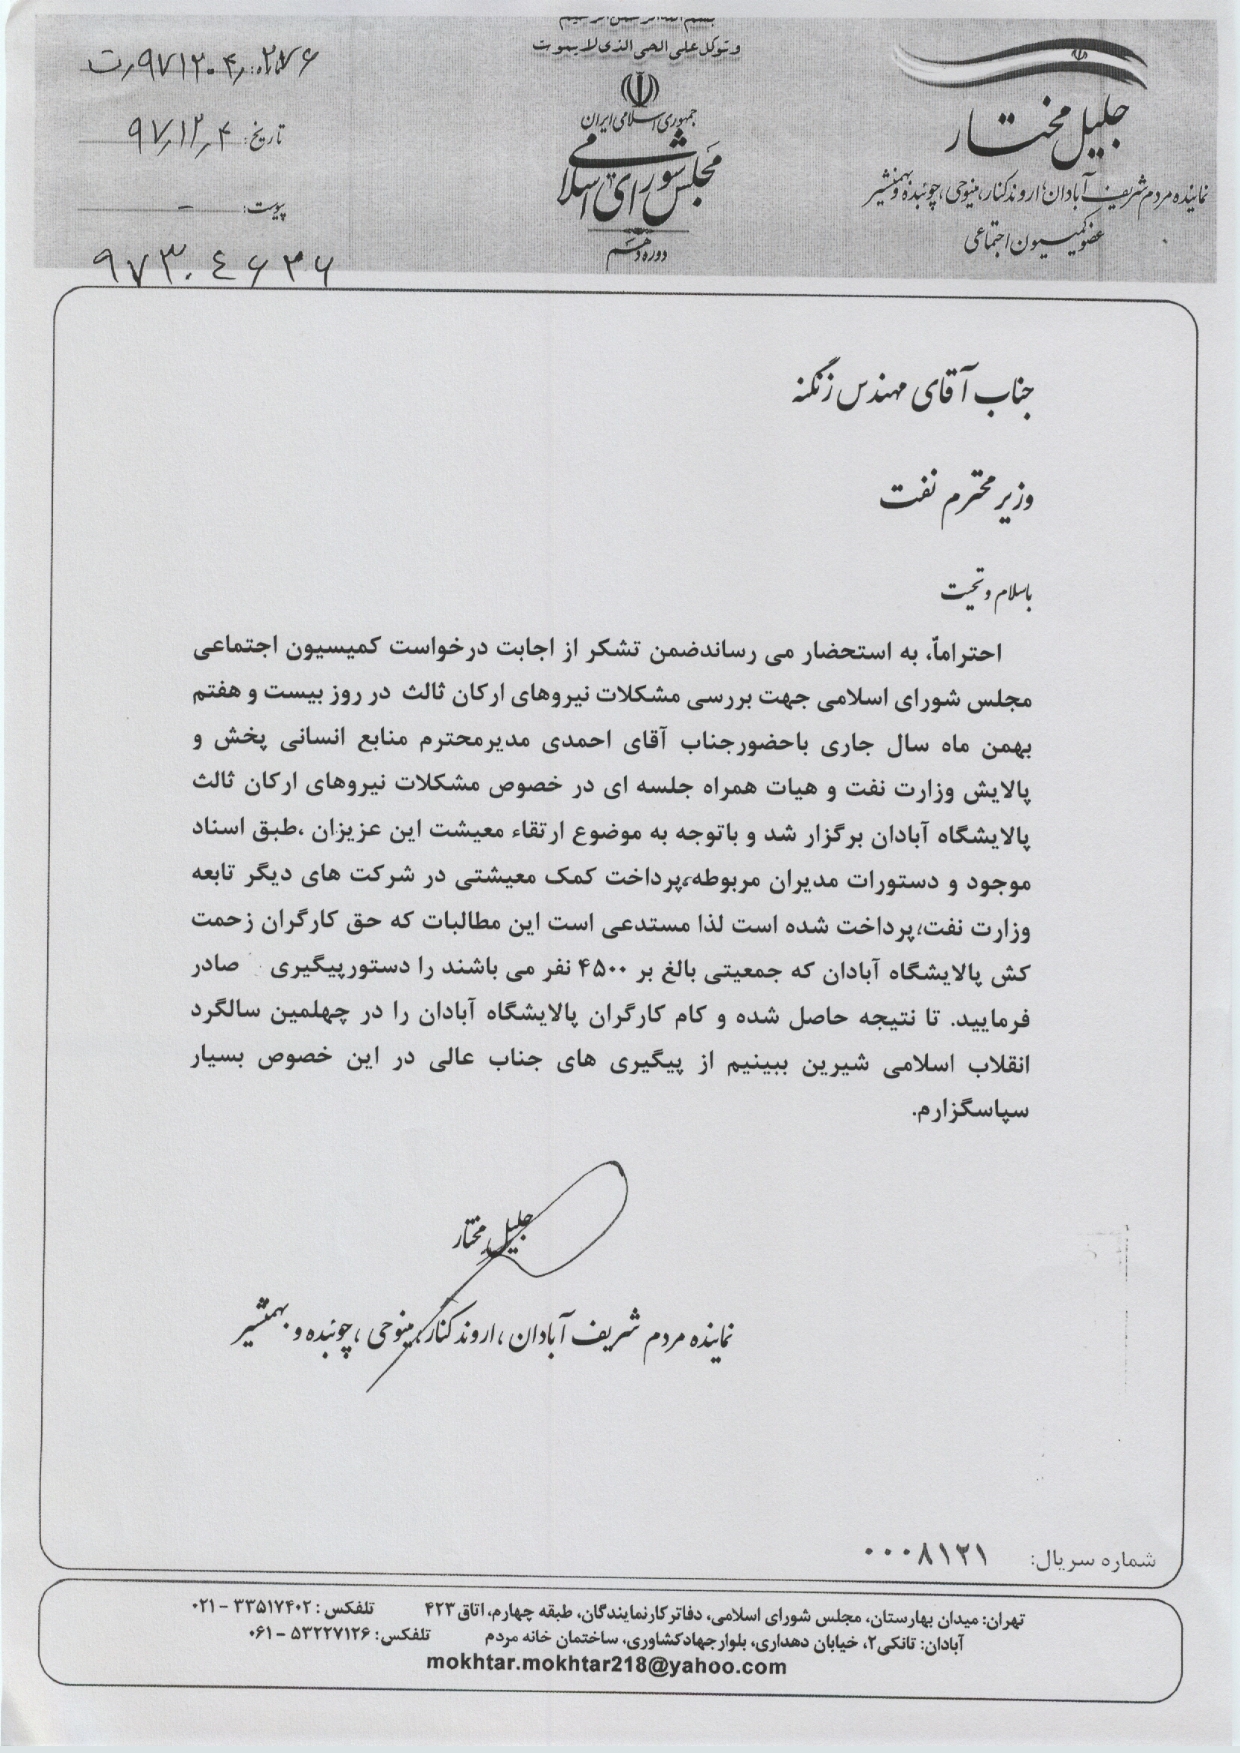 بسم الله الرحمن الرحیم
وتوکل علی الحی الذی لایموت
جمهوری اسلامی ایران
مجلس شورای اسلامی
دوره دهم
جلیل مختار
نماینده مردم شریف آبادان، اروندکنار، مینوحی، چوئبده و بهمنشیر
عضو کمیسیون اجتماعی
تاریخ: ۹۷٫۱۲٫۴
پیوست: -
۹۷۳۰۴۶۳۶
جناب آقای مهندس زنگنه
وزیر محترم نفت
باسلام و تحیت
احتراماً، به استحضار می رساندضمن تشکر از اجابت درخواست کمیسیون اجتماعی
مجلس شورای اسلامی جهت بررسی مشکلات نیروهای ارکان ثالث در روز بیست و هفتم
بهمن ماه سال جاری باحضورجناب آقای احمدی مدیرمحترم منابع انسانی پخش و
پالایش وزارت نفت و هیات همراه جلسه ای در خصوص مشکلات نیروهای ارکان ثالث
پالایشگاه آبادان برگزار شد و باتوجه به موضوع ارتقاء معیشت این عزیزان ،طبق اسناد
موجود و دستورات مدیران مربوطه،پرداخت کمک معیشتی در شرکت های دیگر تابعه
وزارت نفت،پرداخت شده است لذا مستدعی است این مطالبات که حق کارگران زحمت
کش پالایشگاه آبادان که جمعیتی بالغ بر ۴۵۰۰ نفر می باشند را دستورپیگیری صادر
فرمایید. تا نتیجه حاصل شده و کام کارگران پالایشگاه آبادان را در چهلمین سالگرد
انقلاب اسلامی شیرین ببینیم از پیگیری های جناب عالی در این خصوص بسیار
سپاسگزارم.
جلیل مختار
نماینده مردم شریف آبادان ، اروند کنار، مینوحی ، چوئبده و بهمنشیر
شماره سریال: ۰۰۰۸۱۲۱
تهران: میدان بهارستان، مجلس شورای اسلامی، دفاتر کارنمایندگان، طبقه چهارم، اتاق ۴۲۳ تلفکس : ۳۳۵۱۷۴۰۲ - ۰۲۱
آبادان: تانکی۲، خیابان دهداری، بلوارجهادکشاوری، ساختمان خانه مردم تلفکس: ۵۳۲۲۷۱۲۶ - ۰۶۱
mokhtar.mokhtar218@yahoo.com